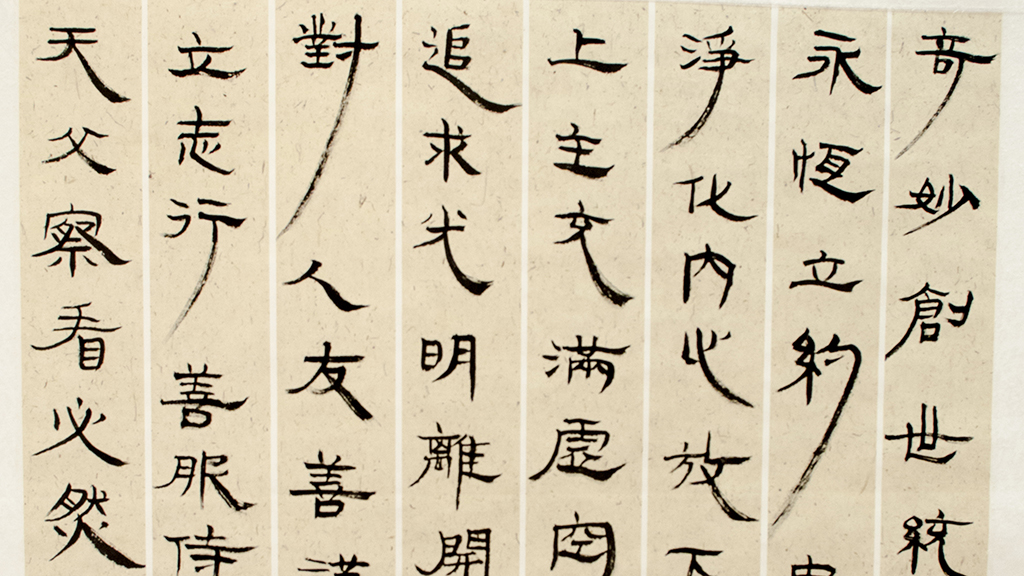 奇妙創世統
永恆立約
淨化內心放下
上主充滿虛空
追求光明離開
對人友善滿
立志行善服侍
天父察看必然